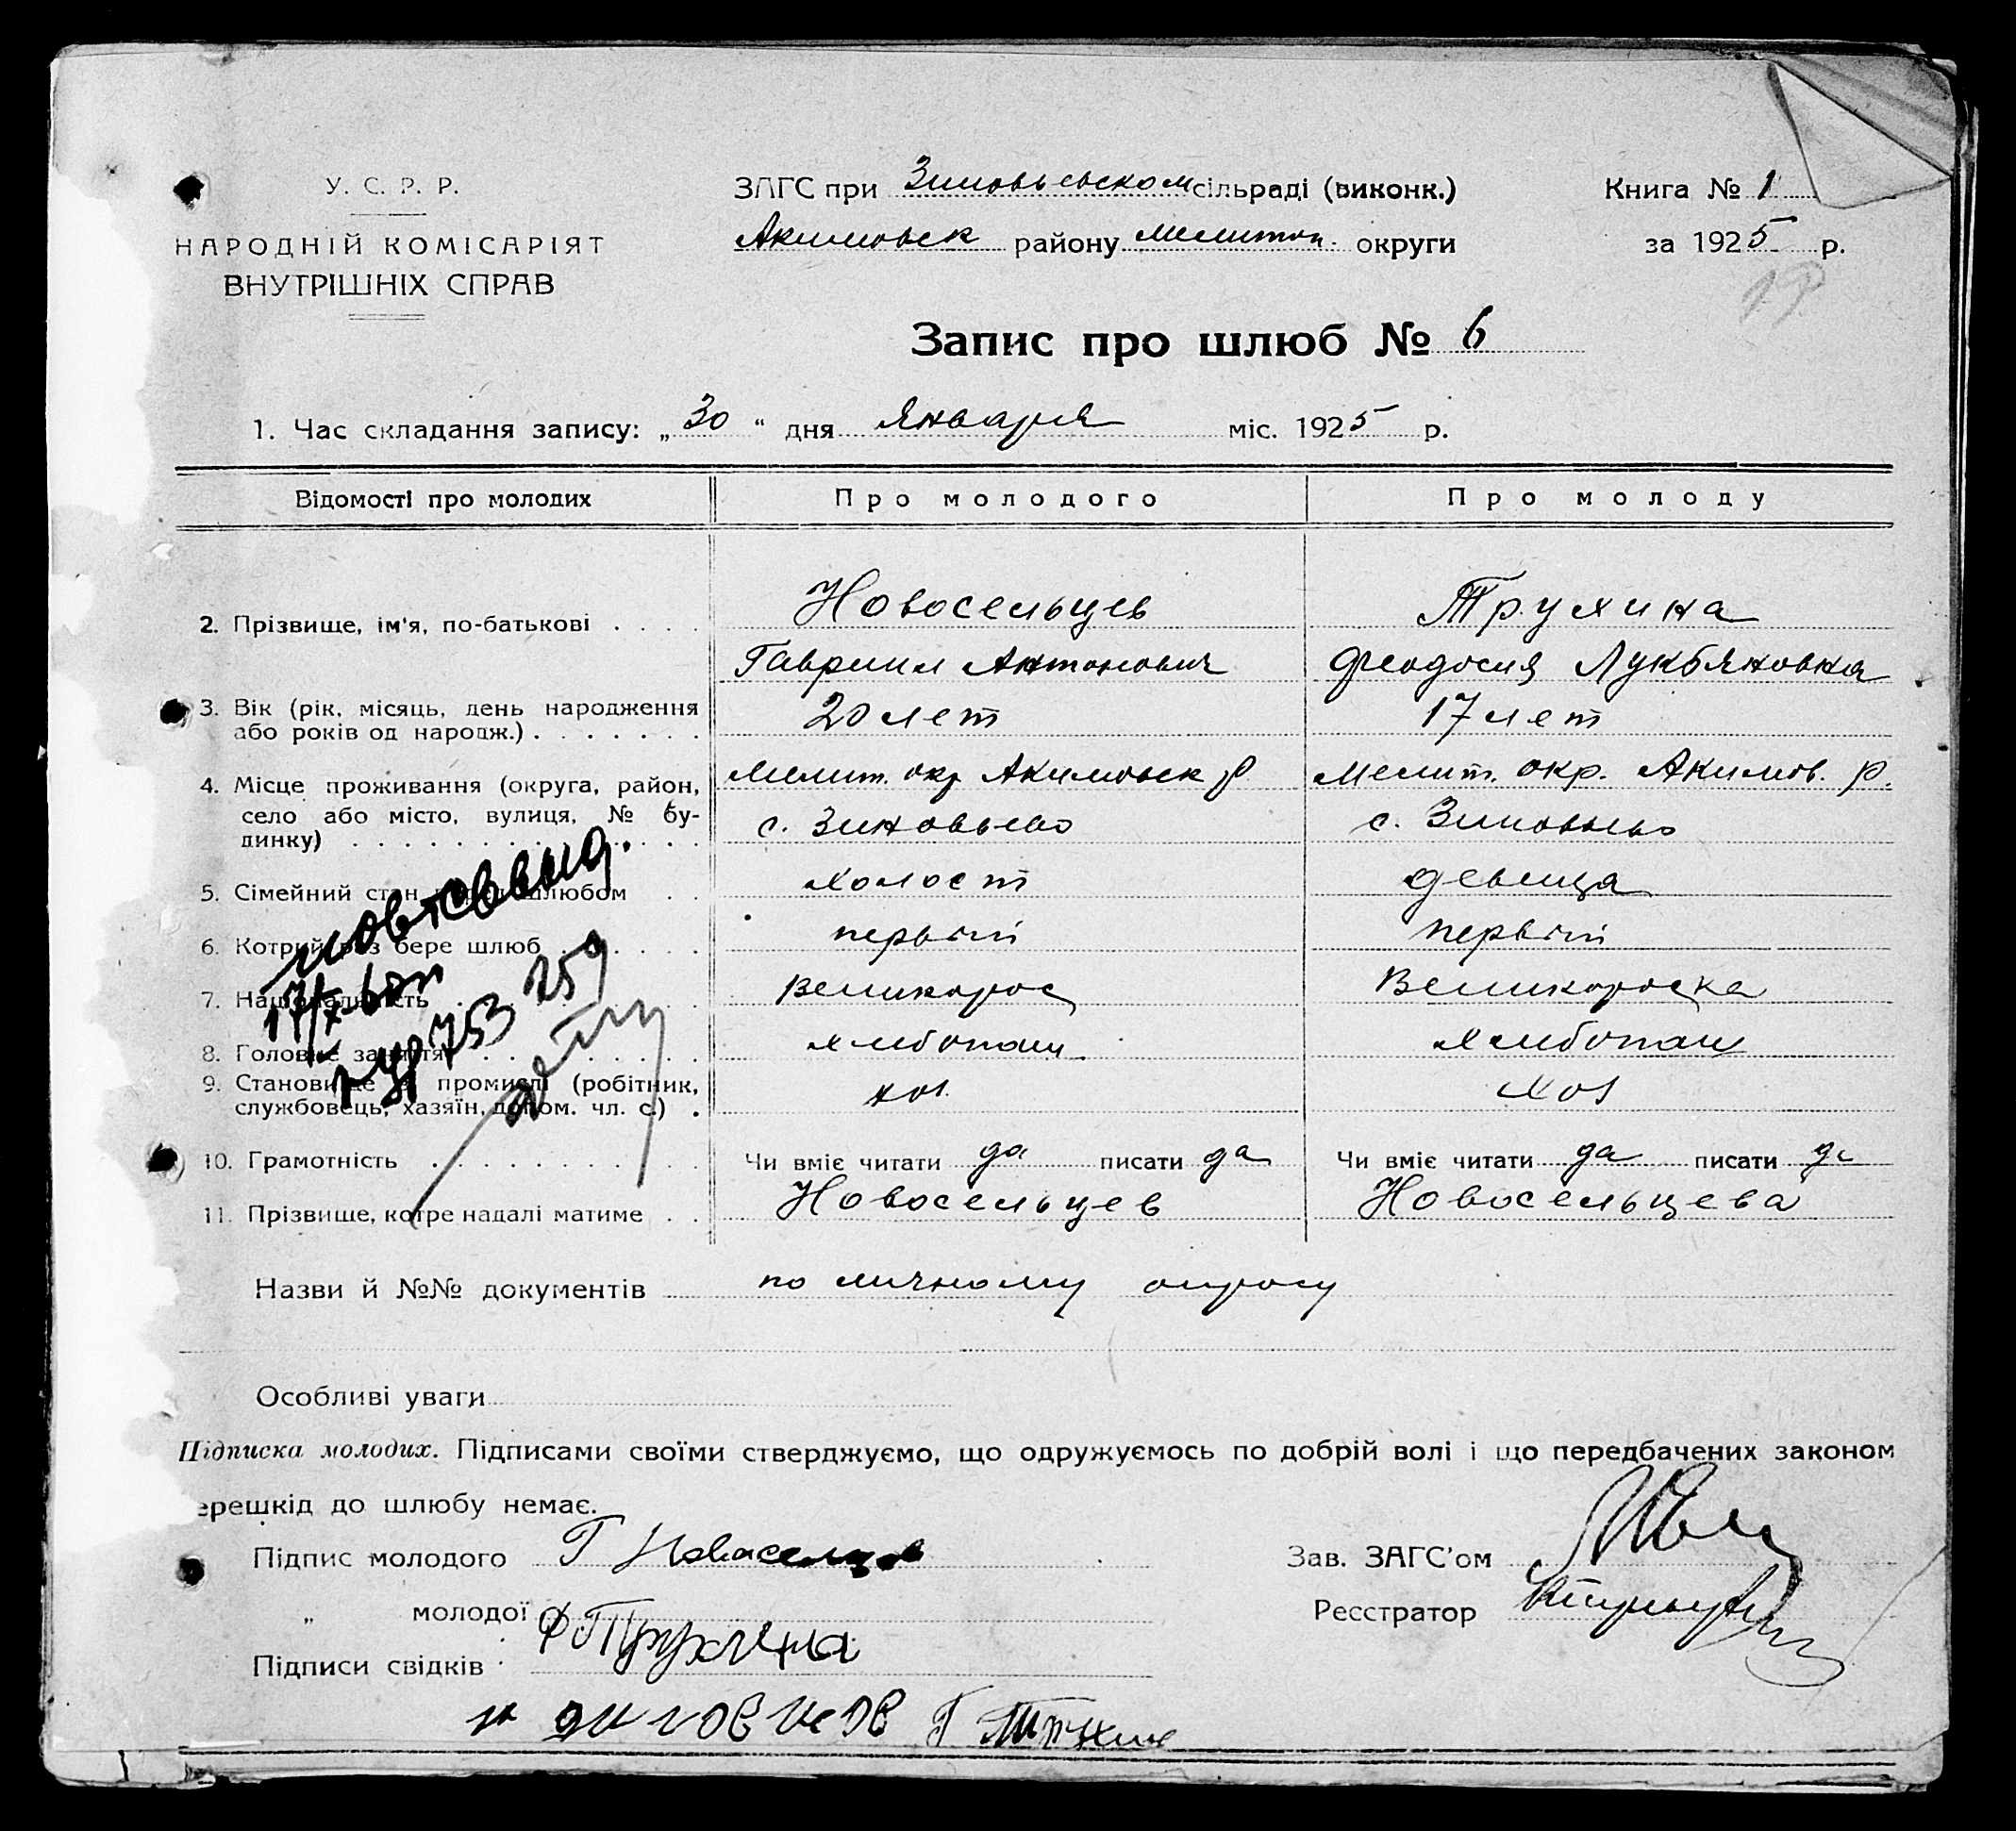 У. С. Р. Р.
НАРОДНІЙ КОМІСАРІЯТ
ВНУТРІШНІХ СПРАВ
ЗАГС при Зиновьевском сільраді (виконк.)
Акимовск району Мелитоп. округи
Книга № 1
за 1925 р.
Запис про шлюб № 6
1. Час складання запису: „30“ дня Января міс. 1925 р.
Відомості про молодих Про молодого Про молоду
2. Прізвище, ім'я, по-батькові . . . . Новосельцев Трухина
Гавриил Антонович Феодосия Лукьяновна
3. Вік (рік, місяць, день народження 20 лет 17 лет
або років од народж.) . . . . . . .
4. Місце проживання (округа, район, Мелит. окр Акимовск р Мелит. окр. Акимов. р.
село або місто, вулиця, № бу- с. Зиновьево с. Зиновьево
динку) . . . . . . . . . . . . . .
5. Сімейний стан перед шлюбом . . холост девица
6. Котрий раз бере шлюб . . . . . . первый первый
7. Національність . . . . . . . . . Великорос Великороска
8. Головне заняття . . . . . . . . . хлебопаш хлебопаш
9. Становище в промислі (робітник,
службовець, хазяїн, допом. чл. с.) . хоз. хоз
10. Грамотність . . . . . . . . . . . Чи вміє читати да писати да Чи вміє читати да писати да
11. Прізвище, котре надалі матиме . . Новосельцев Новосельцева
повт выд.
753 259
Назви й №№ документів по личному опросу
Особливі уваги
Підписка молодих. Підписами своїми стверджуємо, що одружуємось по добрій волі і що передбачених законом
ерешкід до шлюбу немає.
Підпис молодого Г Новоселцов
„ молодої Ф Трухина
Підписи свідків
Зав. ЗАГС'ом
Реєстратор